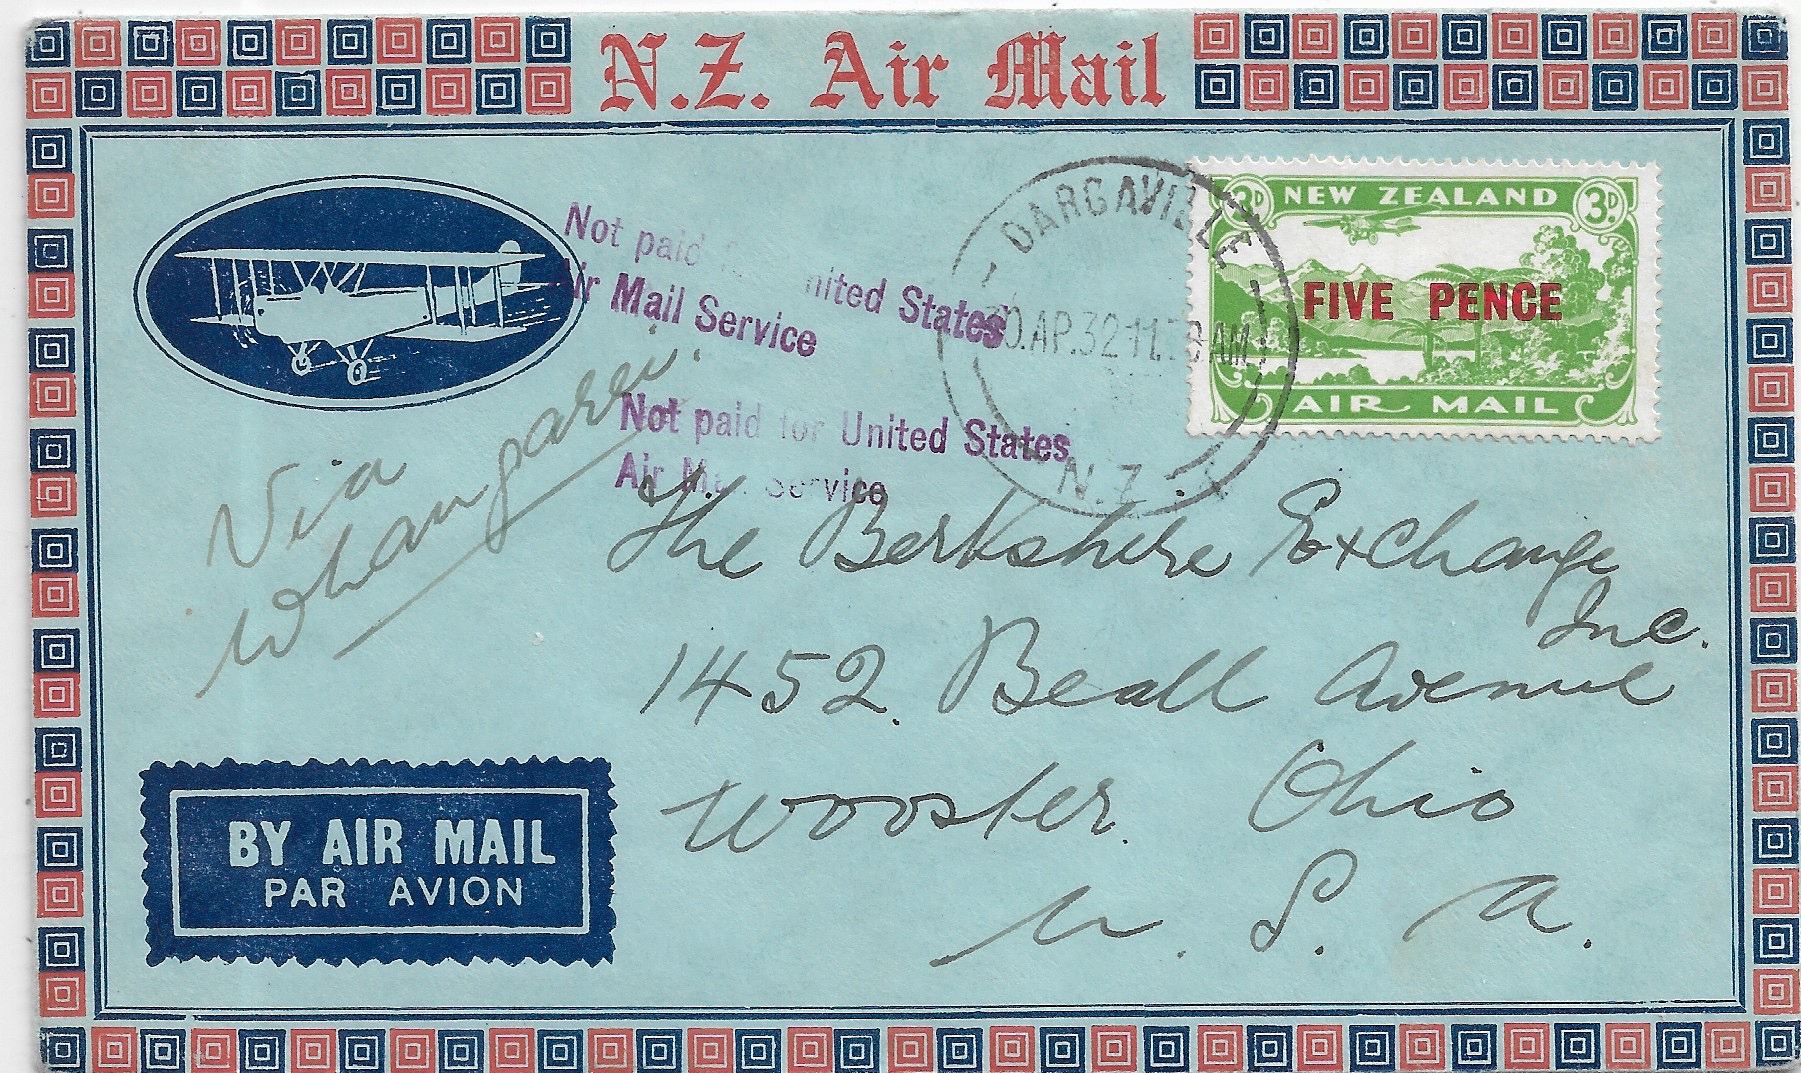 N.Z. Air Mail
3D NEW ZEALAND 3D
FIVE PENCE
AIR MAIL
DARGAVILLE
AP.32 11.
N.Z.
Not paid nited States
Air Mail Service
Not paid for United States
Air Mail Service
Via
Whangarei.
The Berkshire Exchange
Inc.
1452 Beall Avenue
Wooster. Ohio
U. S. A.
BY AIR MAIL
PAR AVION